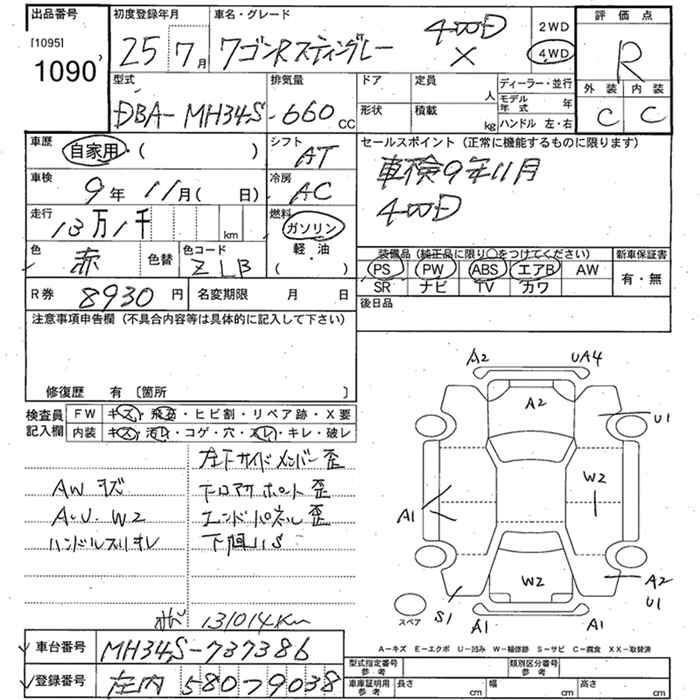 出品番号
[1095]
1090
初度登録年月
25年7月
車名・グレード
ワゴンRスティングレー
4WD
X
2WD
4WD
評価点
R
外装 内装
C C
型式
DBA-MH34S
排気量
660cc
ドア
形状
定員
人
積載
kg
ディーラー・並行
モデル年式 年
ハンドル 左・右
車歴
自家用・( )
シフト
AT
車検
9年11月( 日)
冷房
AC
走行
13万1千 km
燃料
ガソリン
軽・油
( )
色
赤
色替
色コード
ZLB
セールスポイント(正常に機能するものに限ります)
車検9年11月
4WD
装備品(純正品に限り○をつけてください)
PS PW ABS エアB AW
SR ナビ TV カワ
新車保証書
有・無
後日品
R券 8930円
名変期限 月 日
注意事項申告欄(不具合内容等は具体的に記入して下さい)
修復歴 有〔箇所 〕
検査員記入欄
FW キズ・飛石・ヒビ割・リペア跡・X要
内装 キズ・汚れ・コゲ・穴・スレ・キレ・破レ
左下サイドメンバー歪
AWキズ
下ロアサポート歪
A・U.W2
エンドパネル歪
ハンドルスリキレ
下廻りS
131014Km
車台番号 MH34S-737386
登録番号 庄内 580 79038
A2 UA4
A2
U1
W2
A1
W2
A2
U1
S1
A1 A1
スペア
A-キズ E-エクボ U-凹み W-補修跡 S-サビ C-腐食 XX-取替済
型式指定番号 参考
類別区分番号 参考
車庫証明用 参考
長さ cm
幅 cm
高さ cm